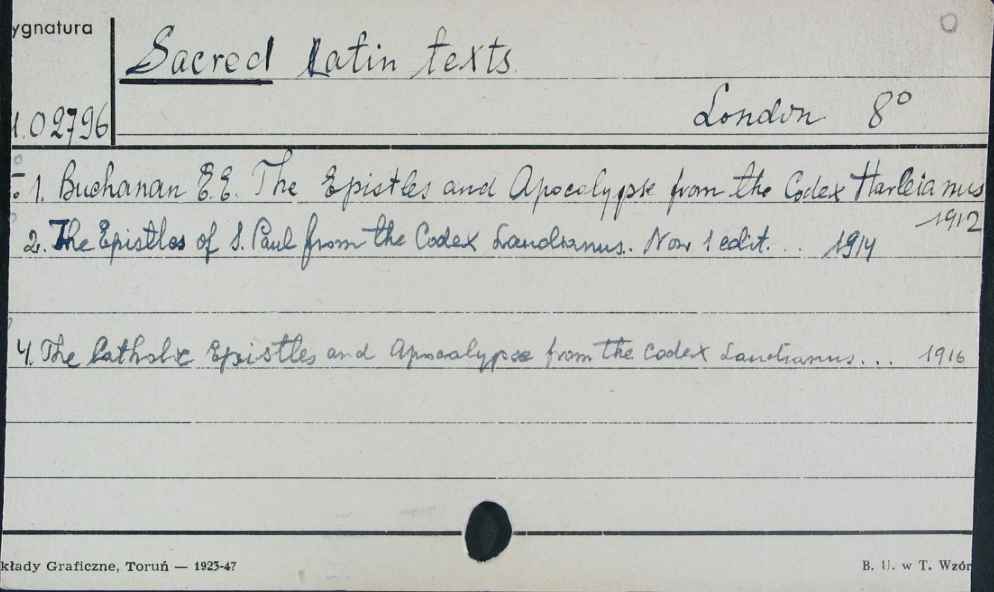 ygnatura
Sacred Latin texts.
London 8°
1.02796
1. Buchanan E.E. The Epistles and Apocalypse from the Codex Harleianus
1912
2. The Epistles of S. Paul from the Codex Laudianus. Now 1 edit. .. 1914
4. The Catholic Epistles and Apocalypse from the Codex Laudianus... 1916
kłady Graficzne, Toruń — 1925-47
B. U. w T. Wzór